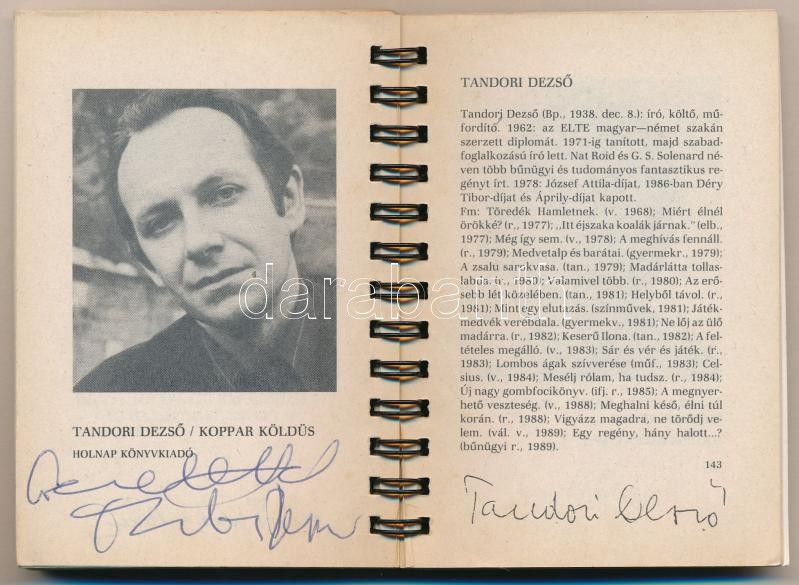 TANDORI DEZSŐ / KOPPAR KÖLDÜS
HOLNAP KÖNYVKIADÓ
TANDORI DEZSŐ
Tandori Dezső (Bp., 1938. dec. 8.): író, költő, mű-
fordító. 1962: az ELTE magyar—német szakán
szerzett diplomát. 1971-ig tanított, majd szabad-
foglalkozású író lett. Nat Roid és G. S. Solenard né-
ven több bűnügyi és tudományos fantasztikus re-
gényt írt. 1978: József Attila-díjat, 1986-ban Déry
Tibor-díjat és Áprily-díjat kapott.
Fm: Töredék Hamletnek. (v. 1968); Miért élnél
örökké? (r., 1977); „Itt éjszaka koalák járnak." (elb.,
1977); Még így sem. (v., 1978); A meghívás fennáll.
(r., 1979); Medvetalp és barátai. (gyermekr., 1979);
A zsalu sarokvasa. (tan., 1979); Madárlátta tollas-
labda. (r., 1980); Valamivel több. (r., 1980); Az erő-
sebb lét közelében. (tan., 1981); Helyből távol. (r.,
1981); Mint egy elutazás. (színművek, 1981); Játék-
medvék verébdala. (gyermekv., 1981); Ne lőj az ülő
madárra. (r., 1982); Keserű Ilona. (tan., 1982); A fel-
tételes megálló. (v., 1983); Sár és vér és játék. (r.,
1983); Lombos ágak szívverése (műf., 1983); Cel-
sius. (v., 1984); Mesélj rólam, ha tudsz. (r., 1984);
Új nagy gombfocikönyv. (ifj. r., 1985); A megnyer-
hető veszteség. (v., 1988); Meghalni késő, élni túl
korán. (r., 1988); Vigyázz magadra, ne törődj ve-
lem. (vál. v., 1989); Egy regény, hány halott...?
(bűnügyi r., 1989).
143
Tandori Dezső
darabanth